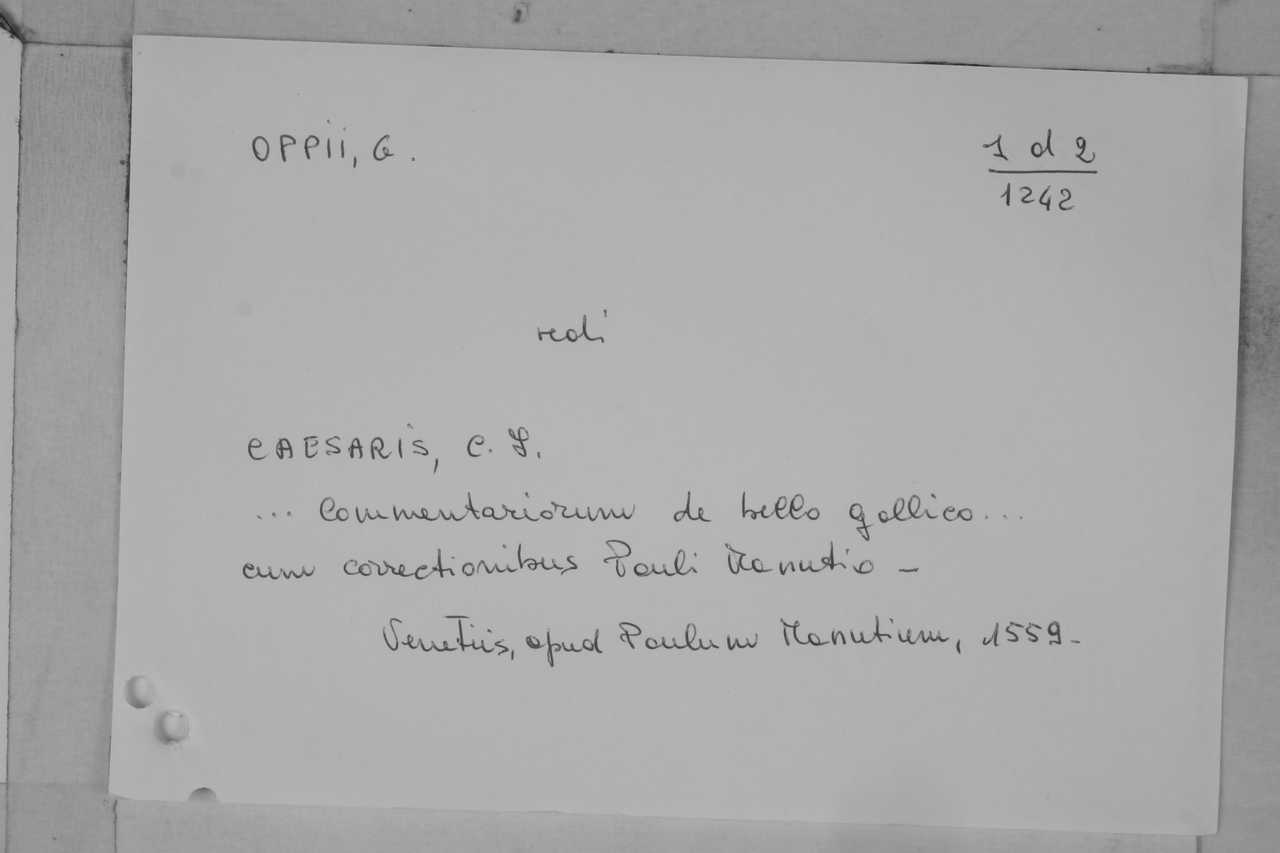 OPPII, G.
1 d 2
1242
vedi
CAESARIS, C. J.
... Commentariorum de bello gallico...
cum correctionibus Pauli Manutio -
Venetiis, apud Paulum Manutium, 1559-